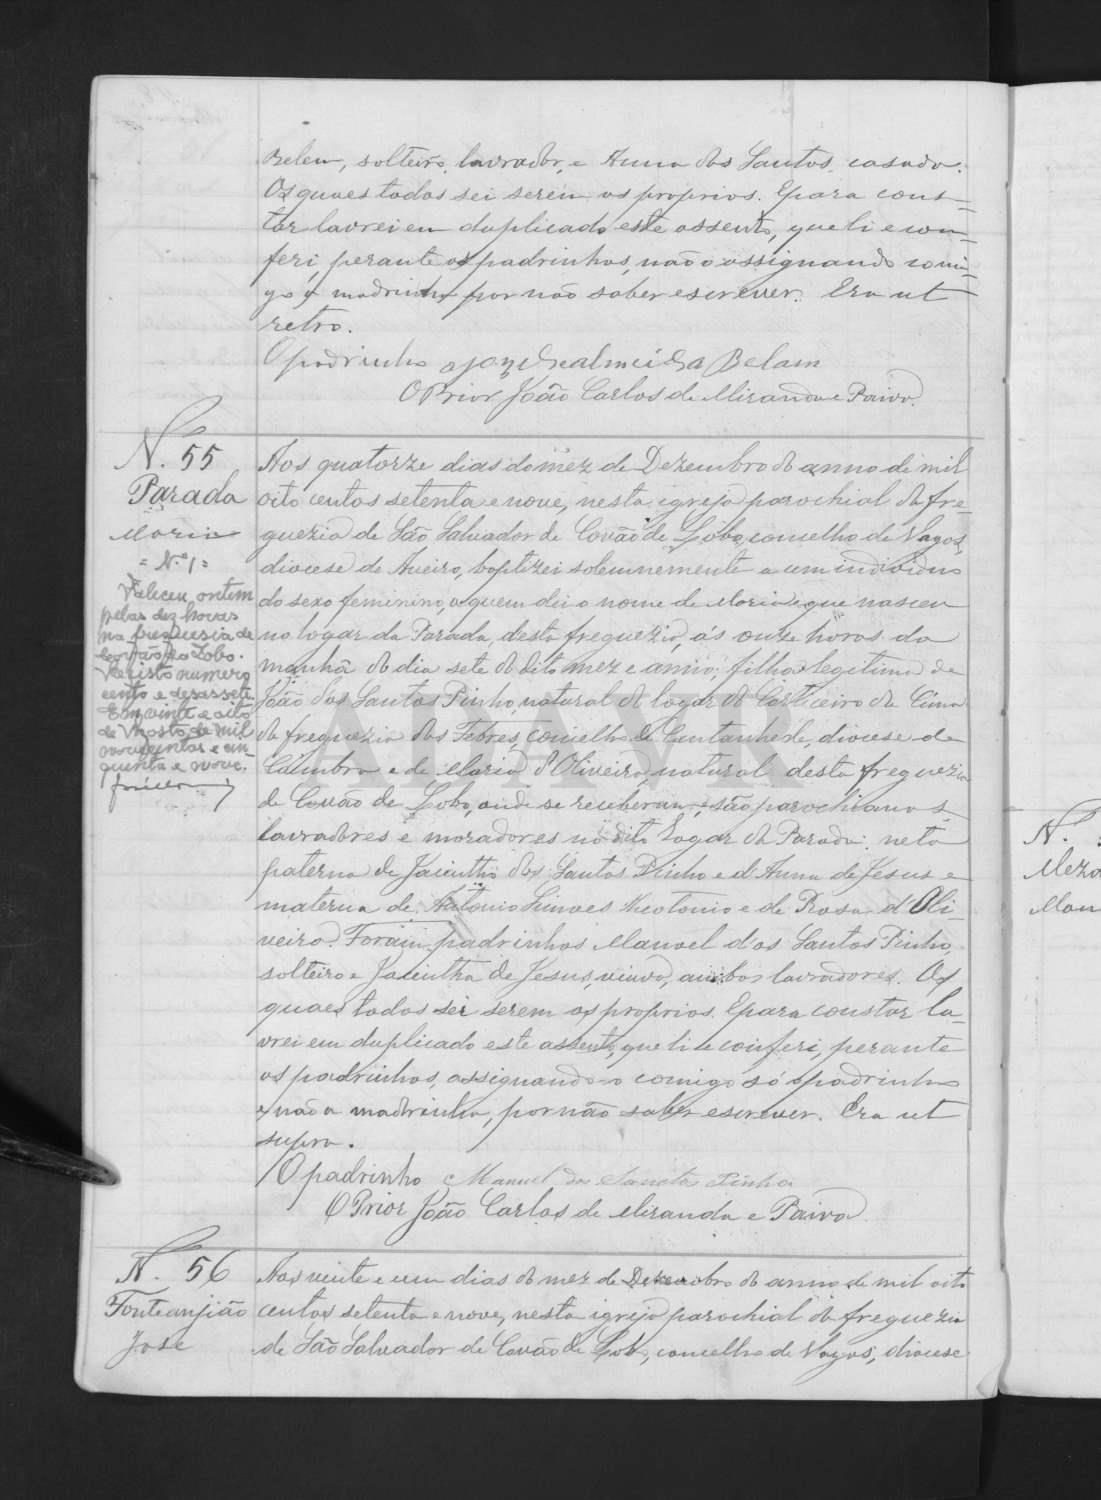 Belem, solteiro, lavrador, e Anna dos Santos, casada.
Os quaes todos sei serem os proprios. E para cons-
tar lavrei em duplicado este assento, que li e con-
feri, perante os padrinhos, não o assignando comi-
go a madrinha por não saber escrever. Era ut
retro.
O padrinho Jozé de Almeida Belam
O Prior João Carlos de Miranda e Paiva.
N. 55
Parada
Maria
= N.º 1 =
Faleceu, ontem
pelas dez horas
na freguesia de
Covão do Lobo.
Registo numero
cento e desassete.
Em vinte e oito
de Agosto de mil
novecentos e cin-
quenta e nove.
Aos quatorze dias do mez de Dezembro do anno de mil
oito centos setenta e nove, nesta igreja parochial da fre-
guezia de São Salvador de Covão de Lobo, concelho de Vagos,
diocese de Aveiro, baptizei solemnemente a um individuo
do sexo feminino, a quem dei o nome de Maria e que nasceu
no logar da Parada, desta freguezia, ás onze horas da
manhã do dia sete do dito mez e anno; filha legitima de
João dos Santos Pinho, natural do logar do Corticeiro de Cima
da freguezia das Febres, concelho de Cantanhede, diocese de
Coimbra e de Maria d'Oliveira, natural desta freguezia
de Covão de Lobo, onde se receberam, e são parochianos,
lavradores e moradores no dito logar da Parada: neta
paterna de Jacintho dos Santos Pinho e d'Anna de Jesus e
materna de Antonio Simoes Theotonio e de Rosa d'Oli-
veira. Foram padrinhos Manoel dos Santos Pinho,
solteiro e Jacintha de Jesus, viuva, ambos lavradores. Os
quaes todos sei serem os proprios. E para constar la-
vrei em duplicado este assento, que li e conferi, perante
os padrinhos, assignando-o comigo só o padrinho
e não a madrinha, por não saber escrever. Era ut
supra.
O padrinho Manuel dos Sanctos Pinho
O Prior João Carlos de Miranda e Paiva
N. 56
Fonte anjião
José
Aos vinte e um dias do mez de Dezembro do anno de mil oito
centos setenta e nove, nesta igreja parochial da freguezia
de São Salvador de Covão de Lobo, concelho de Vagos, diocese
N.